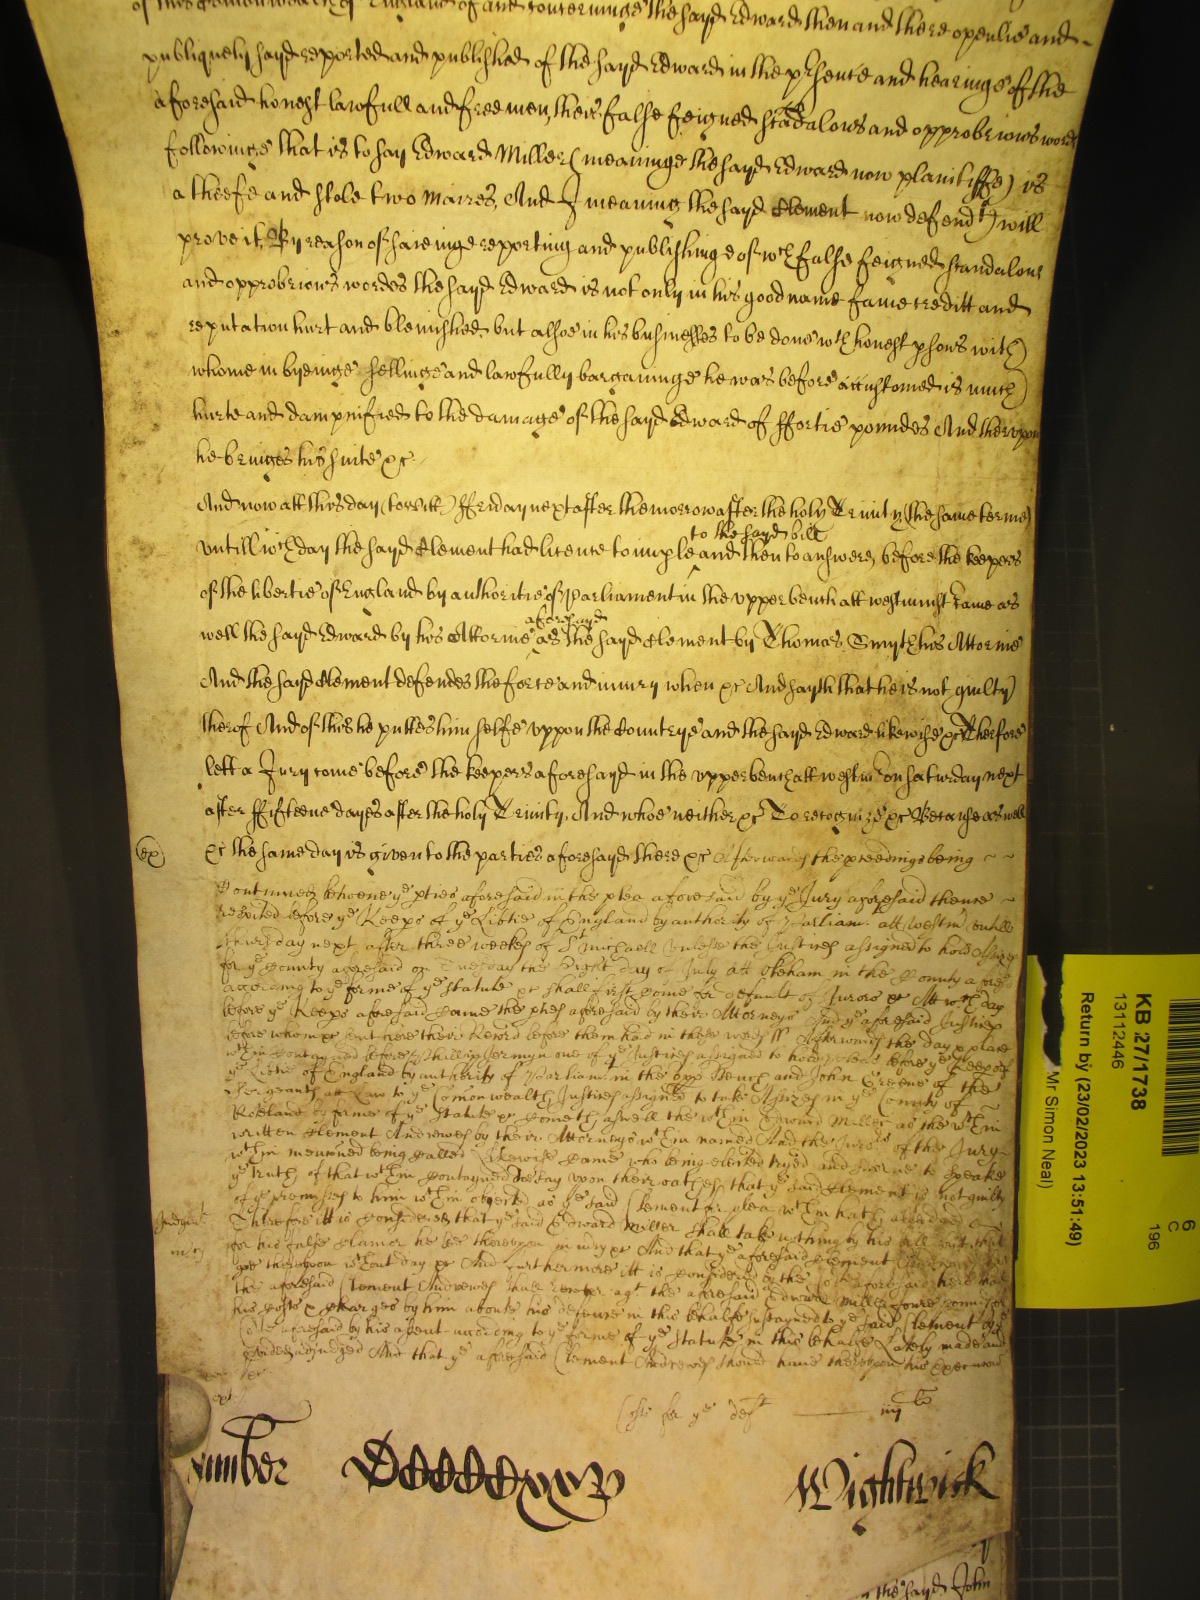 of this Comonwealth of England of and concerninge the sayd Edward then and there openlie and
publiquely sayd reported and published of the sayd Edward in the p'sence and hearinge of the
aforesaid honest lawfull and free men, theis false feigned scandalous and opprobrious words
followinge that is to say Edward Miller (meaninge the sayd Edward now plaintiffe) is
a theefe and stole two Maires, And I meaning the sayd Clement now defendt) will
prove it, By reason of saieinge reporting and publishinge of wch false feigned scandalous
and opprobrious wordes the sayd Edward is not only in his good name fame creditt and
reputation hurt and blemished, but alsoe in his businesses to be done wth honest psons with
whome in byeinge sellinge and lawfully bargaininge he was before accustomed is much
hurte and dampnified to the damage of the sayd Edward of ffortie poundes And therupon
he bringes his suite &c
And now att this day (to witt) ffriday next after the morrow after the holy Trinity (the same terme)
to the sayd bill
untill wch day the sayd Clement had licence to imple and then to answere, before the keepers
of the libertie of England by authoritie of Parliament in the upper bench att westminst came as
aforesayd
well the sayd Edward by his Attornie as the sayd Clement by Thomas Smyth his Attornie
And the sayd Clement defendes the force and iniury when &c And sayth that he is not guilty
therof And of this he puttes him selfe uppon the Countrye and the sayd Edward likewise &c Therfore
lett a Jury come before the keepers aforesayd in the upper bench att westm on saturday next
after ffifteene dayes after the holy Trinity. And whoe neither &c To recognize &c Because as well
(ex)
&c the same day is given to the parties aforesayd there &c Afterwards the pceedings being
Continued betweene ye pties aforesaid in the plea aforesaid by ye Jury aforesaid thence
respited before ye Keeps of ye Libtie of England by authority of Parliam. att Westm untill
thursday next after three weekes of St Michaell Unlesse the Justices assigned to hold Assizes
for ye County aforesaid on Tuesday the Eight day of July att Okeham in the County aforesd
according to ye forme of ye statute &c shall first come for default of Jurors &c Att wch day
before ye Keeps aforesaid Came the pties aforesaid by their Attorneys And ye aforesaid Justices
before whom &c sent here their Record before them had in these words ss Afterwards the day & place
wthin Contayned before Phillip Jermyn one of ye Justices assigned to hold pleas before ye Keepers of
ye Libtie of England by authority of Parliam. in the upp Bench and John Greene of the
Sergeants att Law to ye Comonwealth Justices assigned to take Assizes in ye County of
Rutland by forme of ye Statute &c Cometh aswell the wthin Edward Miller as the wthin
written Clement Andrewes by their Attorneys wthin named And the Jurors of the Jury
wthin mencioned being called Likewise Came who being elected tryed and sworne to speake
ye truth of that wthin Contayned doe say upon their oathes that ye said Clement is not guilty
of ye premisses to him wthin obiected as ye said Clement for plea wthin hath alledged
Judgmt
Therefore itt is Considered that ye said Edward Miller shall take nothing by his bill but that
for his false Clamor he bee thereupon in mcy &c And that ye aforesaid Clement
goe thereupon wthout day &c And furthermore itt is Considered by the Cort aforesaid here that
the aforesaid Clement Andrewes shall recover agt the aforesaid Edward Miller foure pounds for
his Costs & Charges by him about his defence in this behalfe sustayned to ye said Clement by ye
Cort aforesaid by his assent according to ye forme of ye Statute in this behalfe Lately made and
provided adjudged And that ye aforesaid Clement Andrewes should have thereupon his Execucion
ext
Costs for ye deft iiij li
number DCCCCxxv Wightwick
the sayd John
KB 27/1738
13112446
Return by (23/02/2023 13:51:49)
Mr Simon Neal)
6
C
196